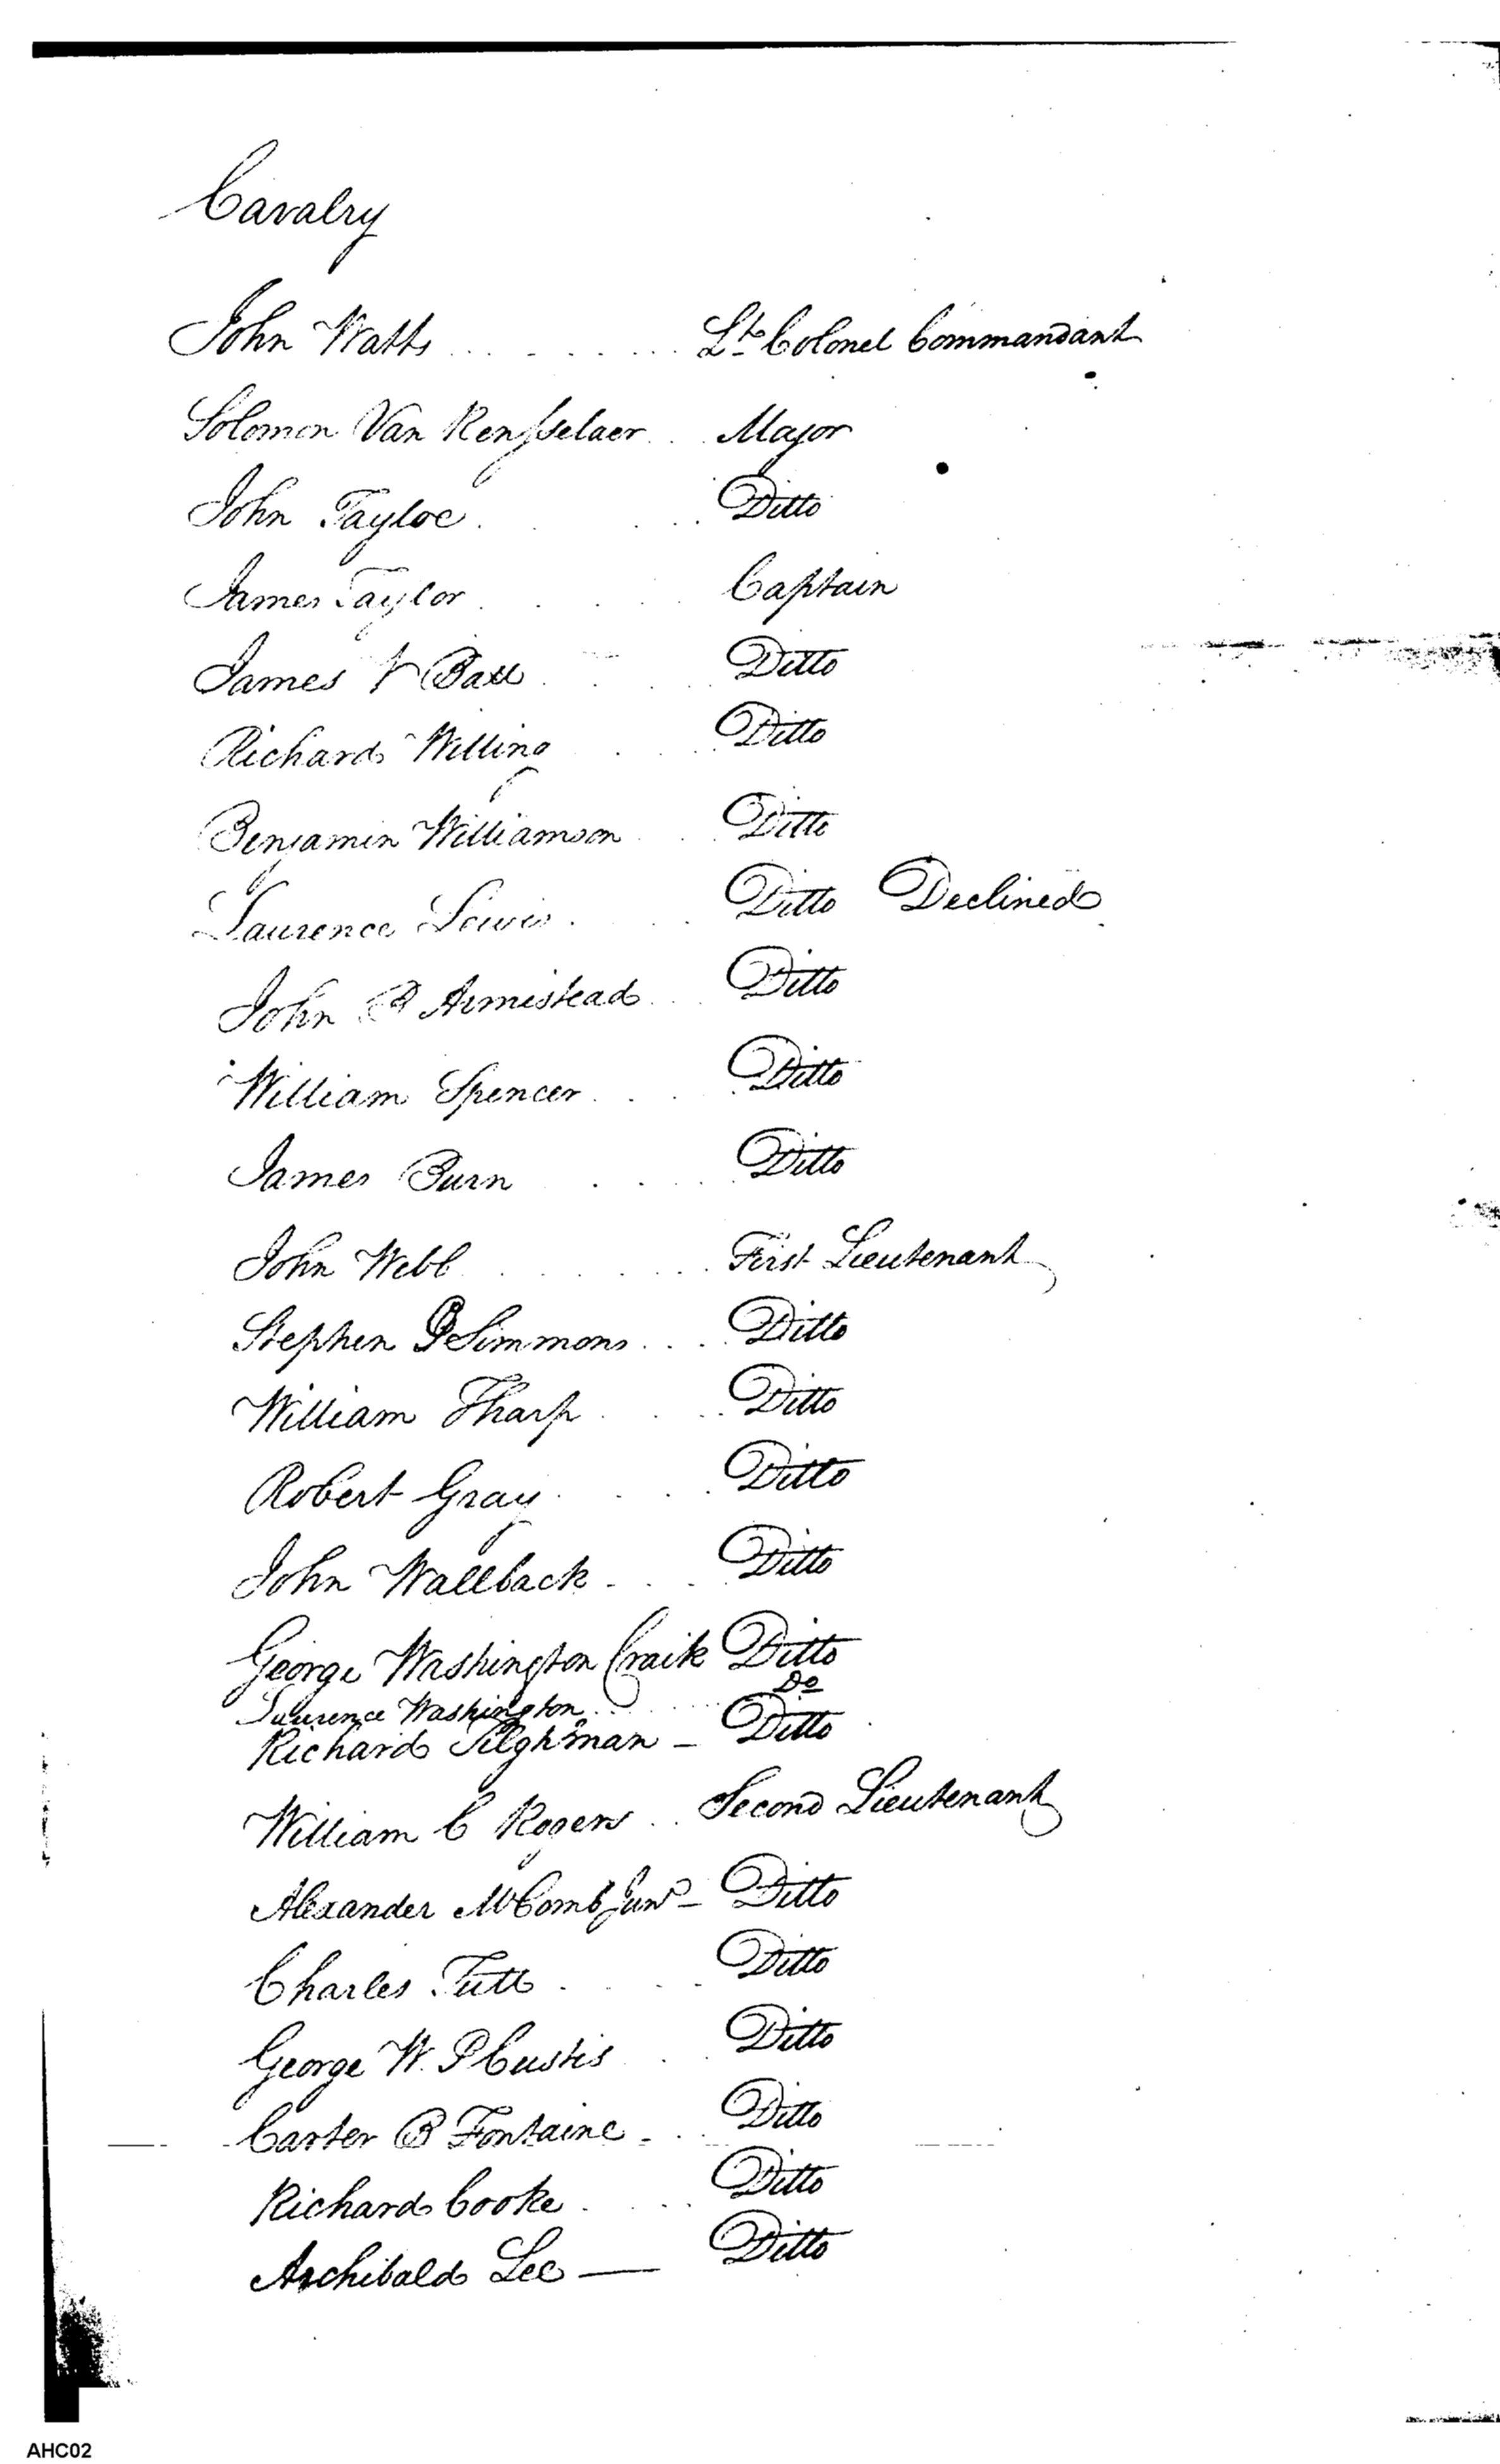 Cavalry
John Watts . . . . . . . . . Lt. Colonel Commandant
Solomon Van Rensselaer . . Major
John Tayloe . . . . . Ditto
James Taylor . . . . . Captain
James V Ball . . . . Ditto
Richard Willing . . . Ditto
Benjamin Williamson . . . Ditto
Laurence Lewis . . . Ditto Declined
John B Armistead . . . Ditto
William Spencer . . . . Ditto
James Burn . . . . Ditto
John Webb . . . . . . . First Lieutenant
Stephen G Simmons . . . . Ditto
William Tharp . . . . Ditto
Robert Gray . . . . Ditto
John Wallback . . . . Ditto
George Washington Craik Ditto
Laurence Washington . . . . . Do
Richard Tilghman — Ditto
William C Rogers . . . Second Lieutenant
Alexander McComb Junr — Ditto
Charles Tutt . . . . Ditto
George W. P Custis . . . Ditto
Carter B Fontaine . . . Ditto
Richard Cooke . . . . Ditto
Archibald Lee — Ditto
AHC02